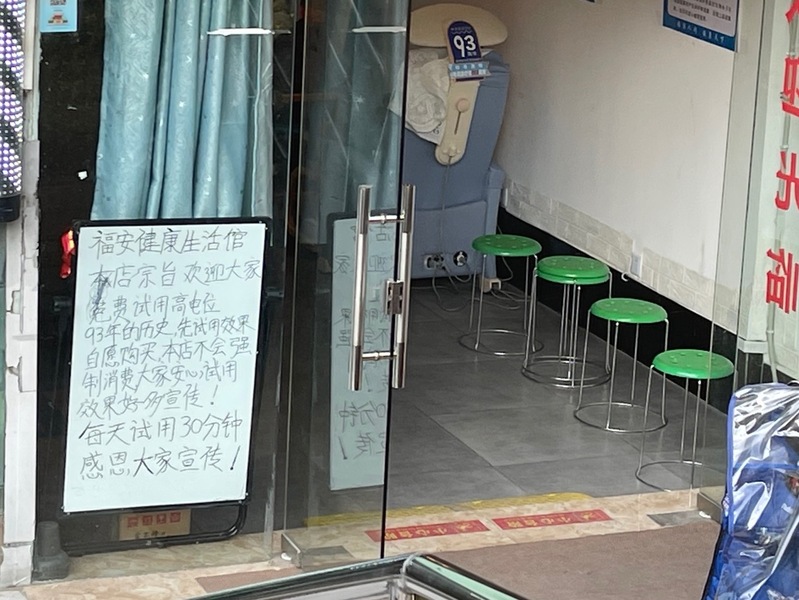 福安健康生活馆
本店宗旨欢迎大家
免费试用高电位
93年的历史，先试用效果
自愿购买，本店不会强
制消费大家安心试用
效果好多宣传！
每天试用30分钟
感恩大家宣传！
93
小心台阶
小心台阶
活馆